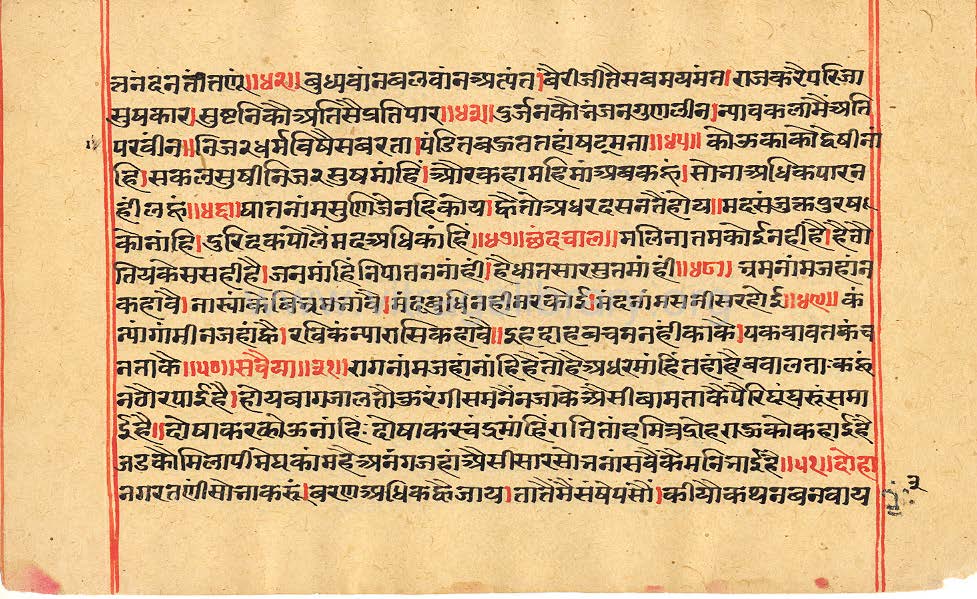 चनंदनतीतणुं॥४२॥बुध्यवांनबलवांनअत्पंत।वैरीजीतैसबमयमंत।राजकरैपरिजा
सुषकार।सुष्टनिकौअतिसैप्रतिपार॥४३॥दुर्जनकौनंजनगुणलीन।न्यावकलामैंअति
परवीन॥निज२धर्मविषैसबरता।पंडितबऊततहांषदमता॥४५॥कोऊकाकोद्वेषीनां
हिं।सकलसुषीनिज२सुषमांहिं।औरकहामहिमांअबकहुं।सोनाअधिकपारन
हींलहुं॥४६॥घातनांमसुणिजेनहिकोय।कैतोअधरदसनतैंहोय॥मदसंजुक्तपुरष
कोनांहि।दुरिदकपोलैंमदअधिकांहि॥४७॥छंदचाल॥मलिनातमकोईनहीहै।हैतो
तियकेससहीहै।जनमांहिंनिपातननांही।हैधातसारसुतमांही॥४८॥चमनांमजहांन
कहावै।नास्यांकेबिक्रयनावै।मंदबुधिनहीनरकोई।मंदनांमसनीसरहोई॥४९॥कं
न्यागांमीनजहांकै।रविकंन्यारासिकहावै॥दुहदाहबचननहीकाकै।यकबावतकंच
नताकै॥५०॥सवैया॥३१॥रागनांमजहांनांहिहैतोहैअधरमांहिंतहांहैबबालता॰कहुं
नठौरपाईहै।होयबागजालतौऊरंगीसमनैनजाकेअैसीबामताकैपैरिघंघरूंसमा
ईहै॥दोषाकरकोऊनांहिं॰दोषाकरचंद्रमांहिंरात्रितांहमित्रद्रोहराऊकोकहाईहै
जडकौमिलापीमेघकांमहैअनंगजहांअैसीसारसोननांसवैकैमनिनाईहै॥५१॥दोहा
नगरतणीसोनाकहुं।बरणअधिकह्वैजाय।तातैंमैंसंषेपसौं।कीयौकथनबनवाय
३